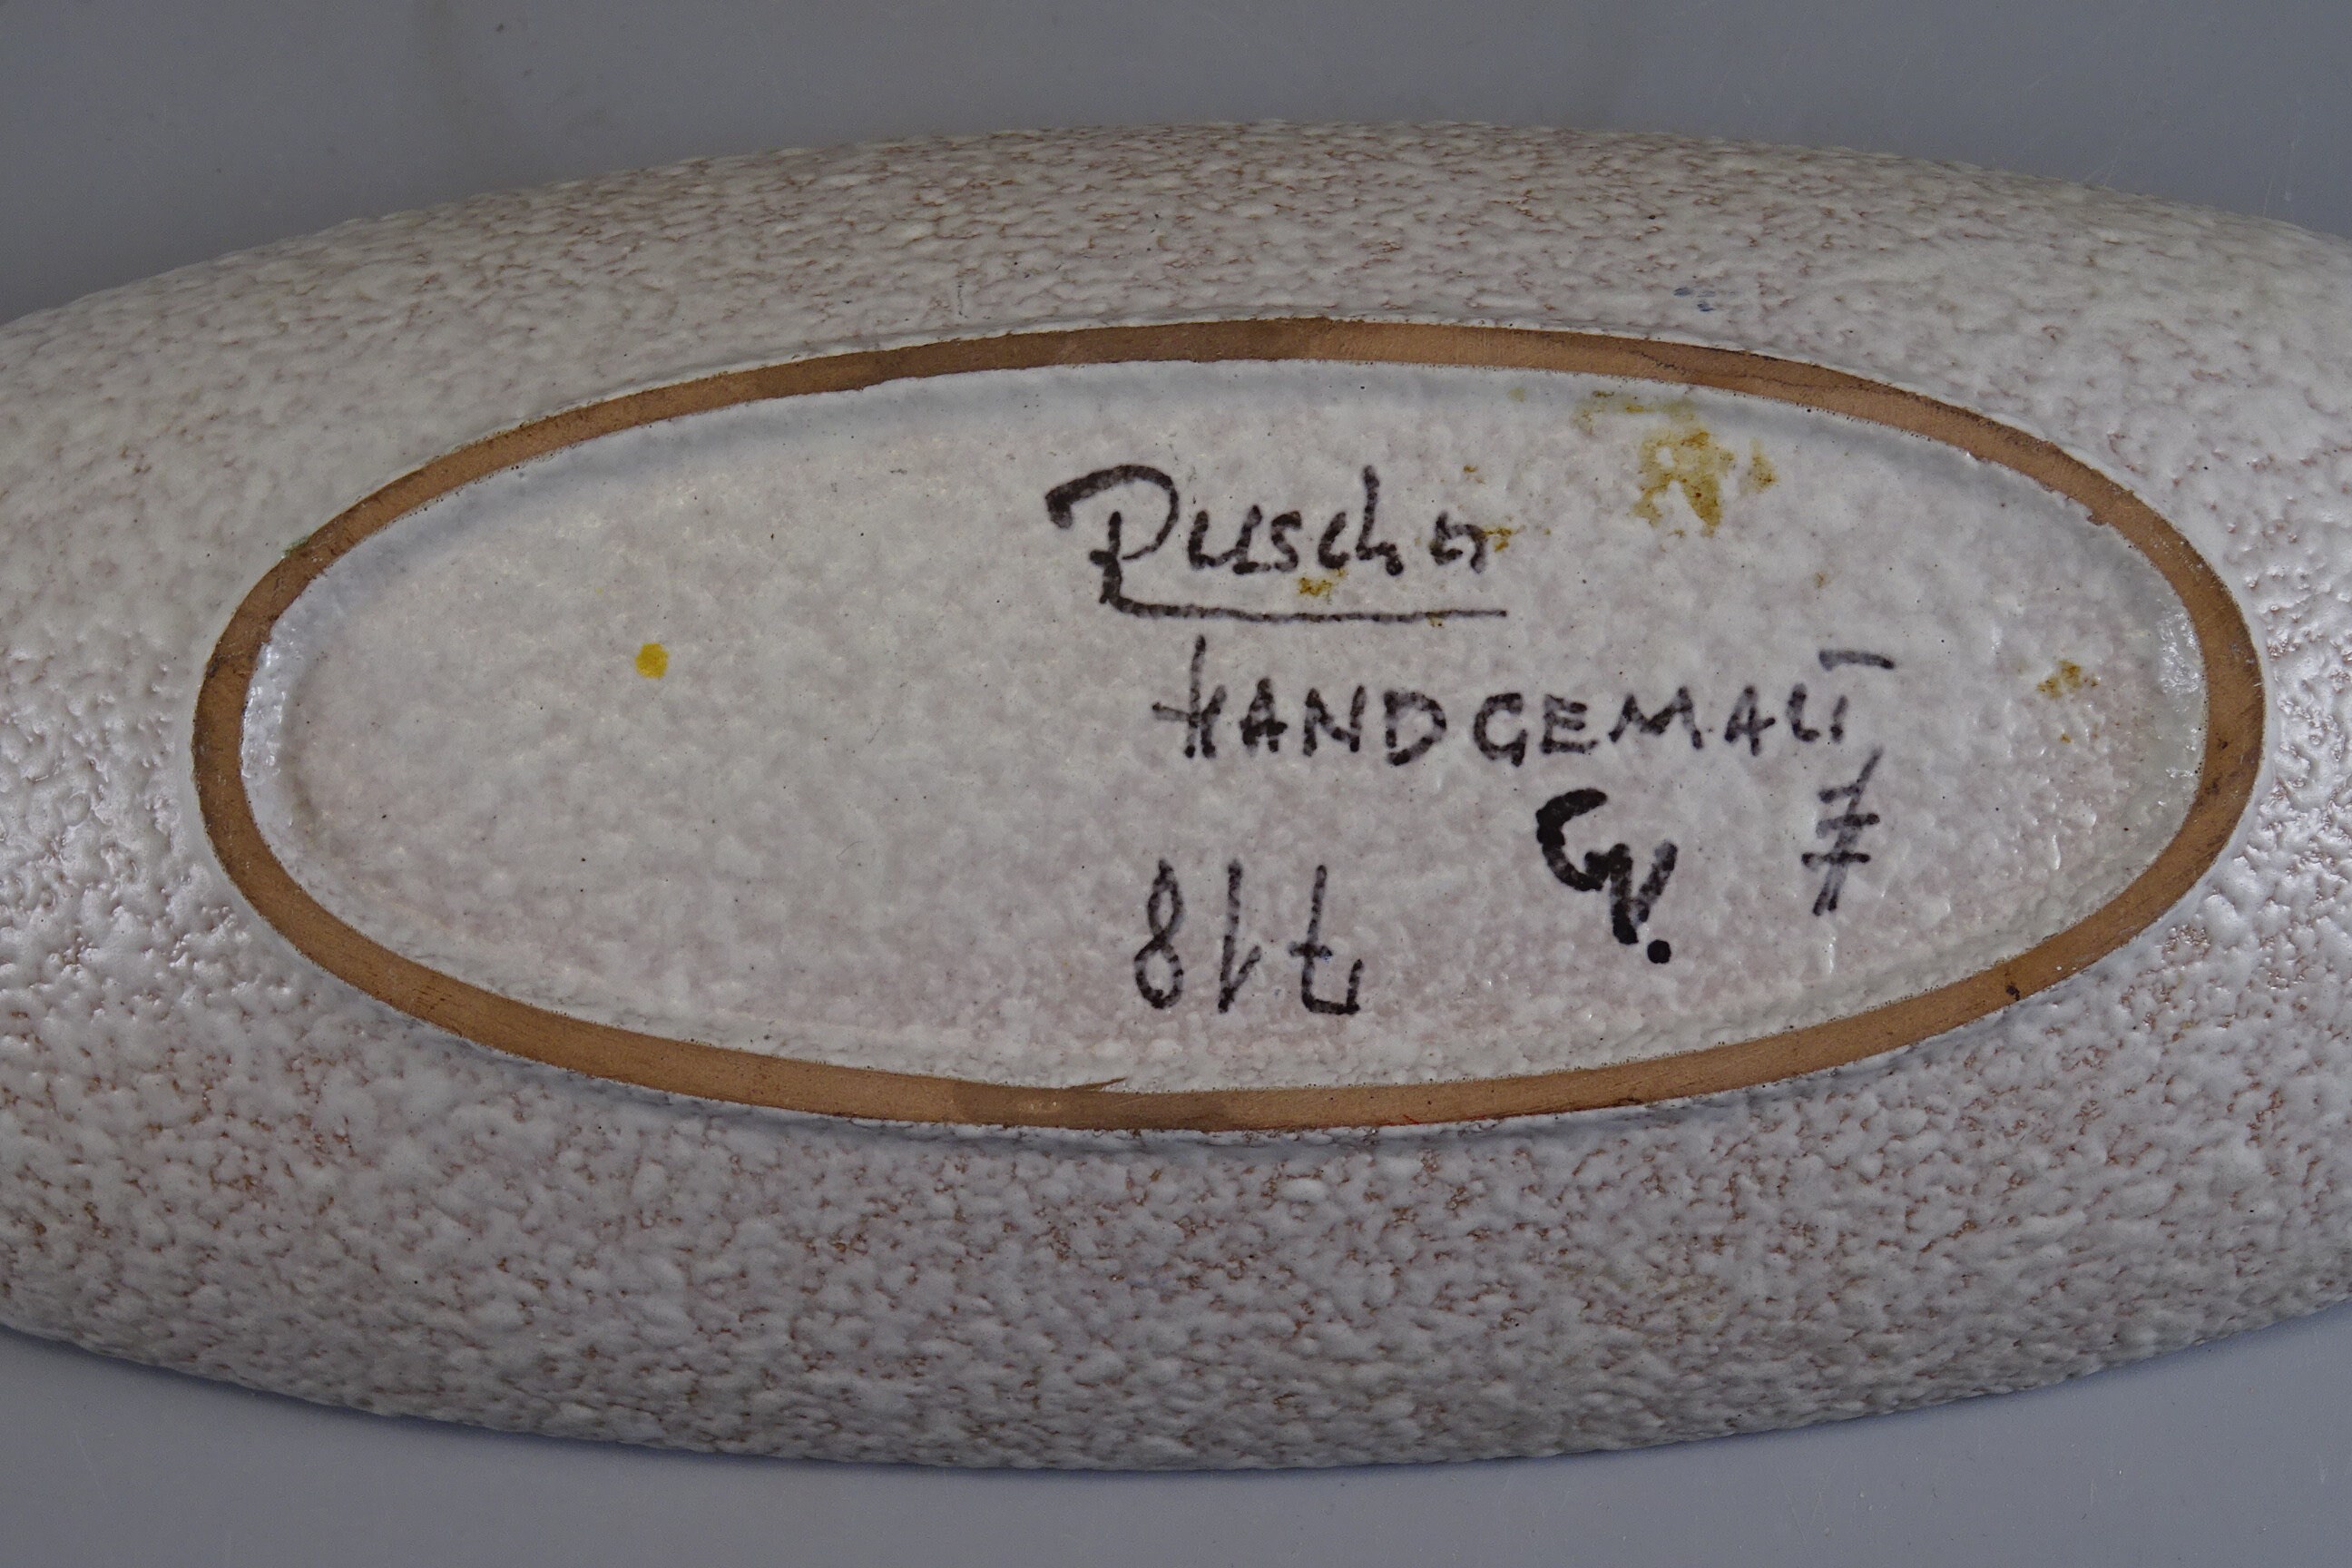 Ruscha
HANDGEMALT
718